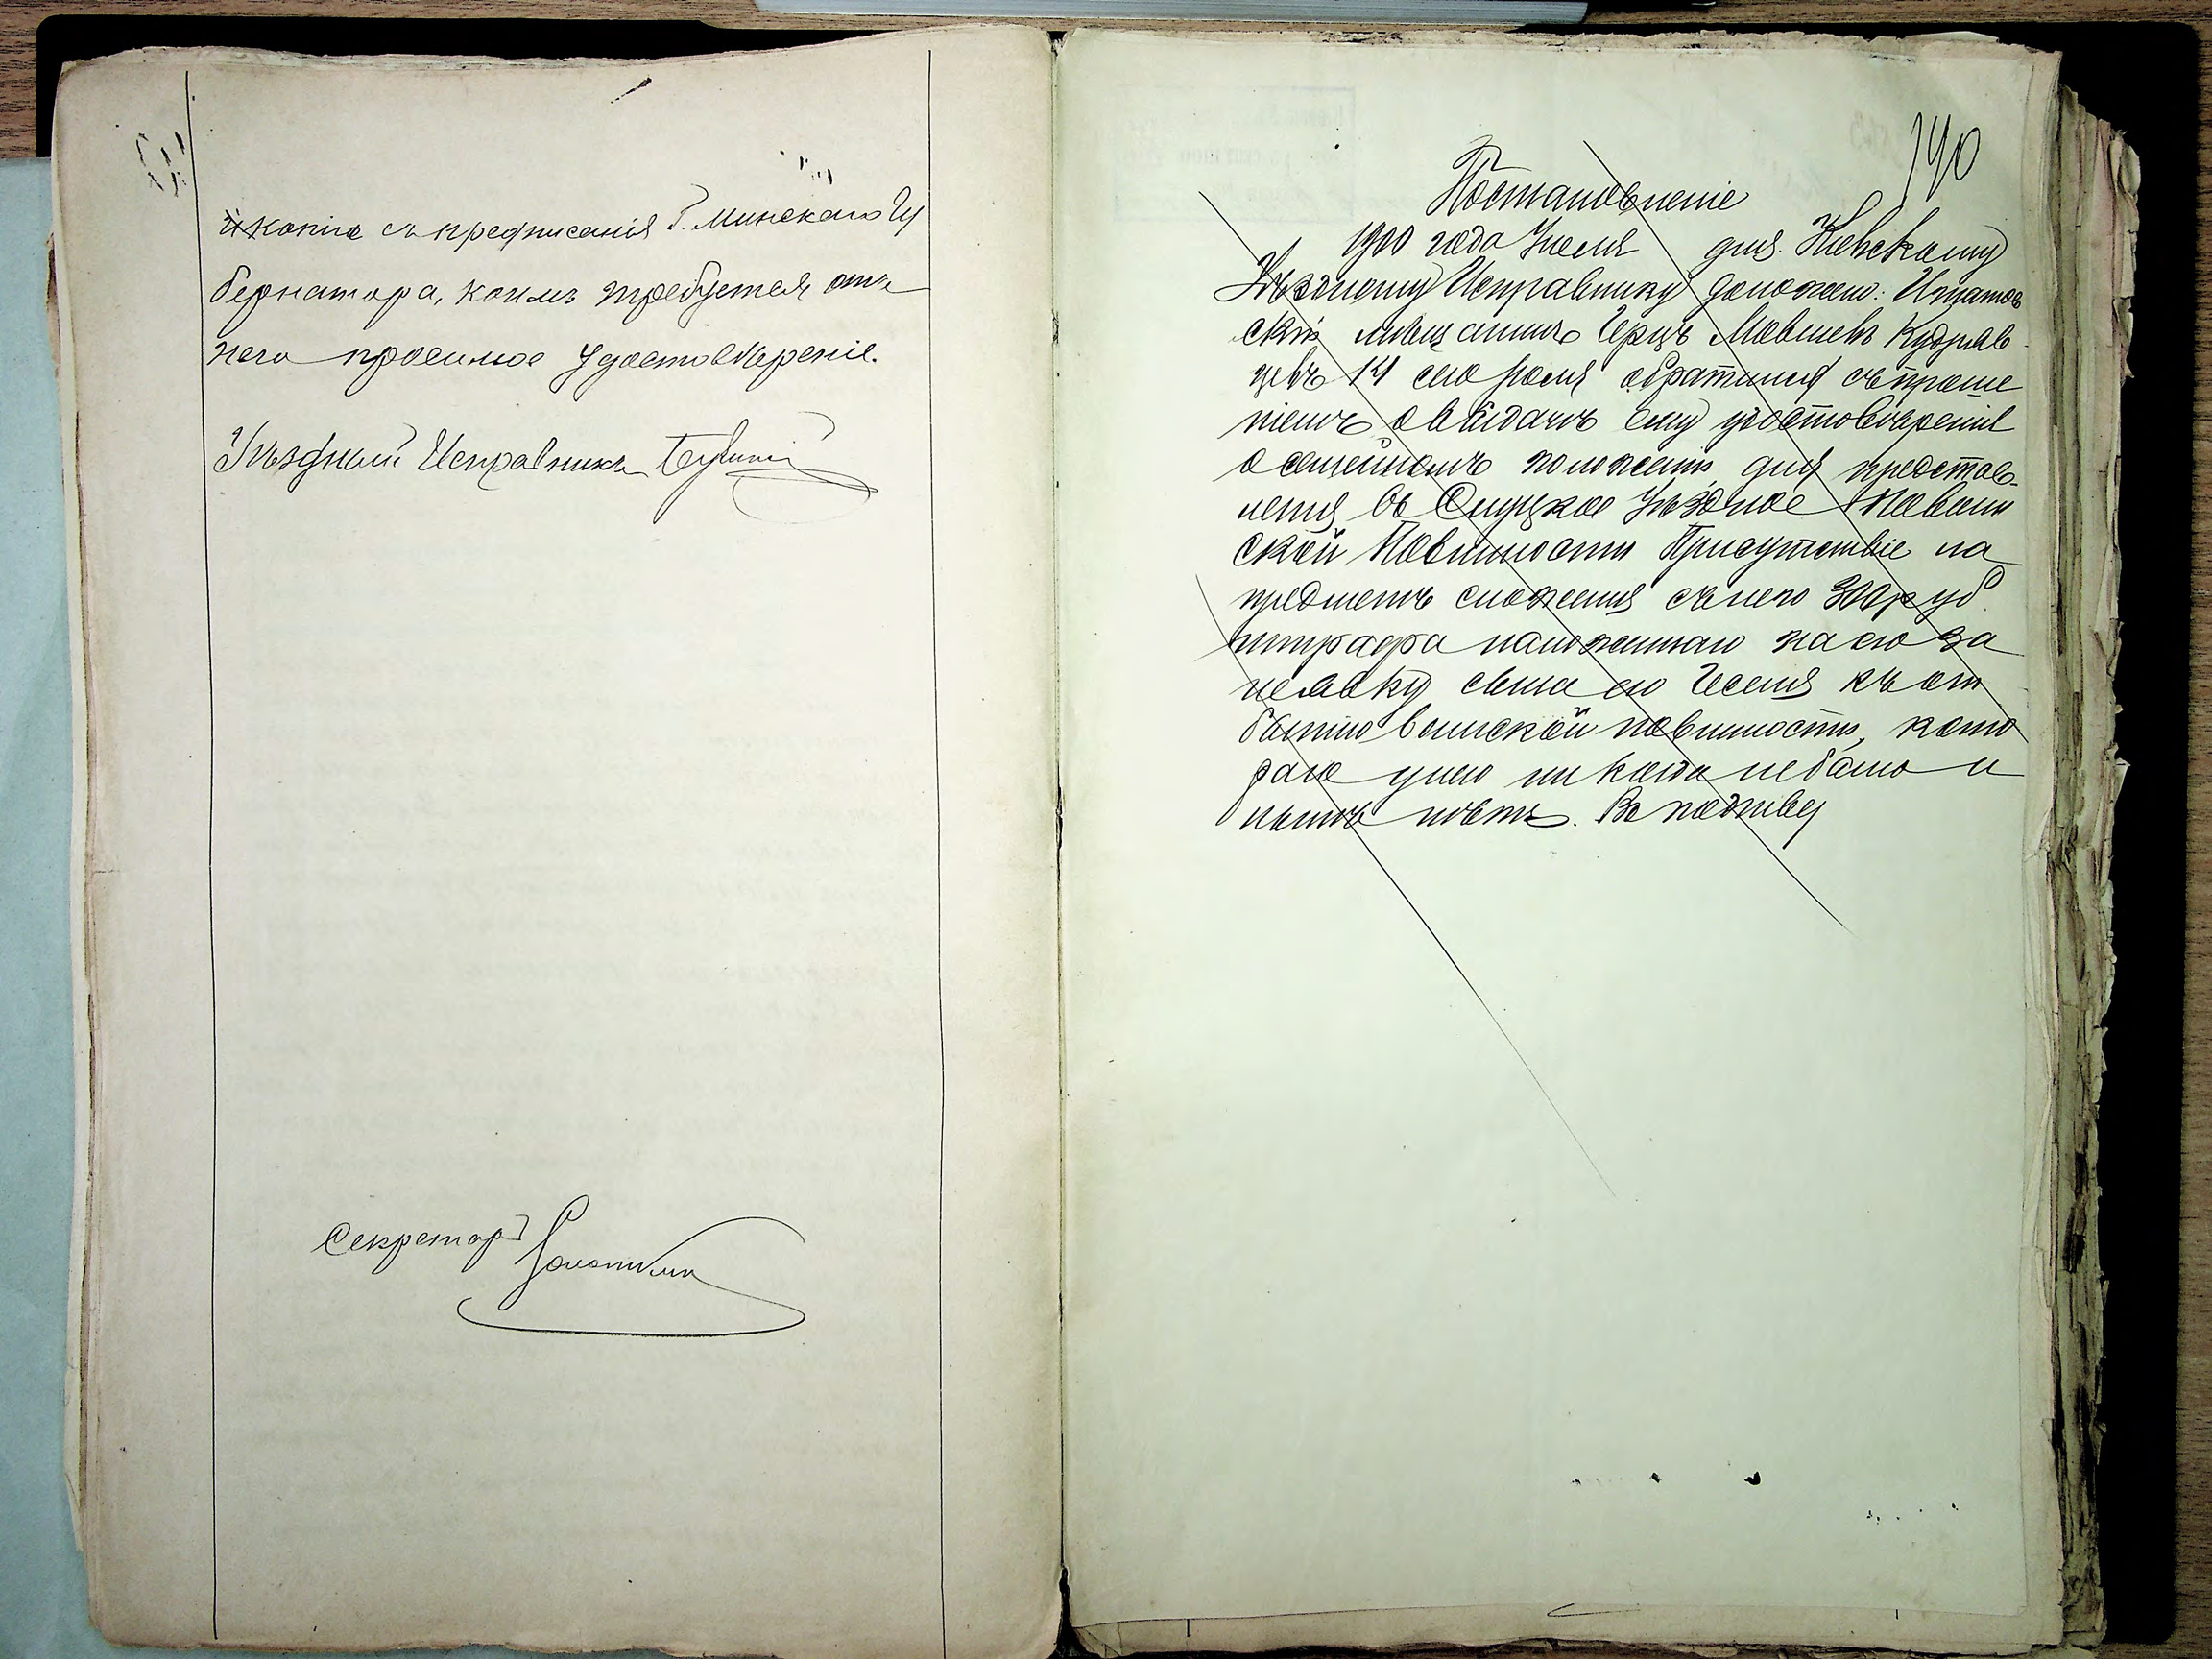 и копіе съ предписанія Г. Минскаго Гу
бернатора, коимъ требуется отъ
него просимое удостовѣреніе.
Уѣздный Исправникъ
Секретарь
190
Постановленіе
1900 года Іюля дня. Кіевскому
Уѣздному Исправнику доложено: Игнатов
скій мѣщанинъ Герцъ Мовшевъ Кудряв
цевъ 14 сего Іюля обратился съ проше
ніемъ о выдачѣ ему удостовѣренія
о семейномъ положеніи, для представ-
ленія въ Слуцкое Уѣздное по Воин
ской Повинности Присутствіе на
предметъ сложенія съ него 300 руб.
штрафа наложеннаго на него за
неявку сына его Іеселя къ от
бытію воинской повинности, кото
раго у него никогда не было и
нынѣ нѣтъ. Въ подтвер